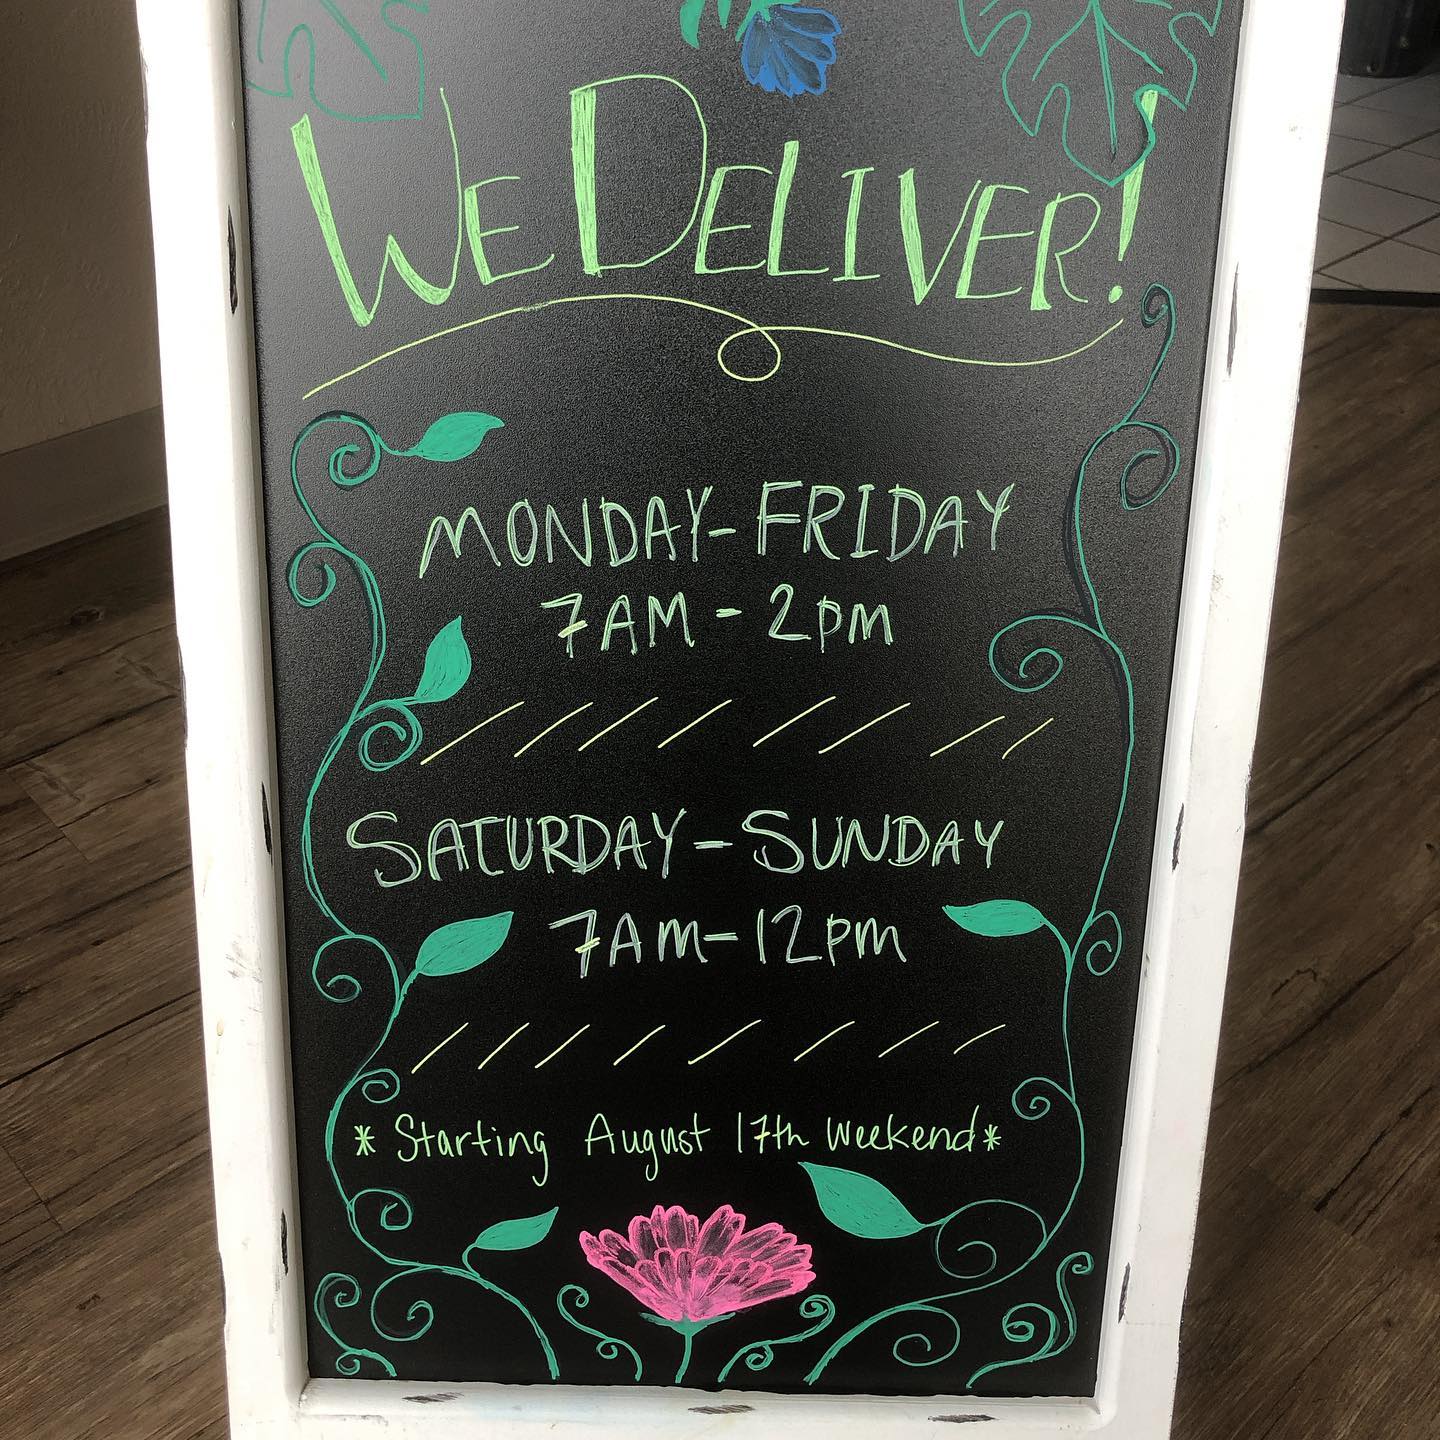 WE DELIVER!
MONDAY-FRIDAY
7AM - 2PM
SATURDAY-SUNDAY
7AM-12PM
* Starting August 17th weekend *